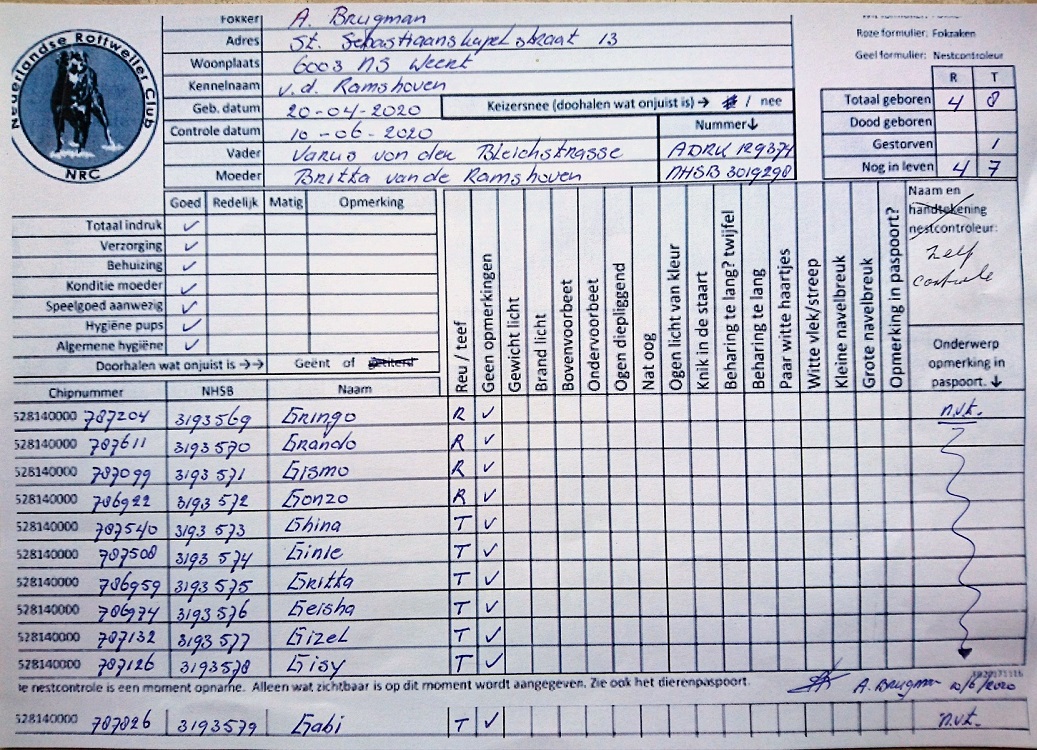 Nederlandse Rottweiler Club
NRC
Fokker A. Brugman
Adres St. Sebastiaanskapelstraat 13
Woonplaats 6003 NS Weert
Kennelnaam v.d. Ramshoven
Geb. datum 20-04-2020 Keizersnee (doorhalen wat onjuist is) → / nee
Controle datum 10-06-2020 Nummer↓
Vader Varus von der Bleichstrasse ADRK 129374
Moeder Britta van de Ramshoven NHSB 3019298
Roze formulier: Fokzaken
Geel formulier: Nestcontroleur
R T
Totaal geboren 4 8
Dood geboren
Gestorven 1
Nog in leven 4 7
Goed Redelijk Matig Opmerking
Totaal indruk ✓
Verzorging ✓
Behuizing ✓
Konditie moeder ✓
Speelgoed aanwezig ✓
Hygiëne pups ✓
Algemene hygiëne ✓
Doorhalen wat onjuist is →→ Geënt of getiterd
Reu / teef
Geen opmerkingen
Gewicht licht
Brand licht
Bovenvoorbeet
Ondervoorbeet
Ogen diepliggend
Nat oog
Ogen licht van kleur
Knik in de staart
Beharing te lang? twijfel
Beharing te lang
Paar witte haartjes
Witte vlek/streep
Kleine navelbreuk
Grote navelbreuk
Opmerking in paspoort?
Naam en
handtekening
nestcontroleur:
zelf
controle
Onderwerp
opmerking in
paspoort. ↓
Chipnummer NHSB Naam
528140000 787204 3193569 Gringo R ✓ n.v.t.
528140000 787611 3193570 Grando R ✓
528140000 787099 3193571 Gismo R ✓
528140000 786922 3193572 Gonzo R ✓
528140000 787540 3193573 Ghina T ✓
528140000 787508 3193574 Ginie T ✓
528140000 786959 3193575 Gritta T ✓
528140000 786974 3193576 Geisha T ✓
528140000 787132 3193577 Gizel T ✓
528140000 787126 3193578 Gisy T ✓
de nestcontrole is een moment opname. Alleen wat zichtbaar is op dit moment wordt aangegeven. Zie ook het dierenpaspoort. A. Brugman 10/6/2020
528140000 787826 3193579 Gabi T ✓ n.v.t.